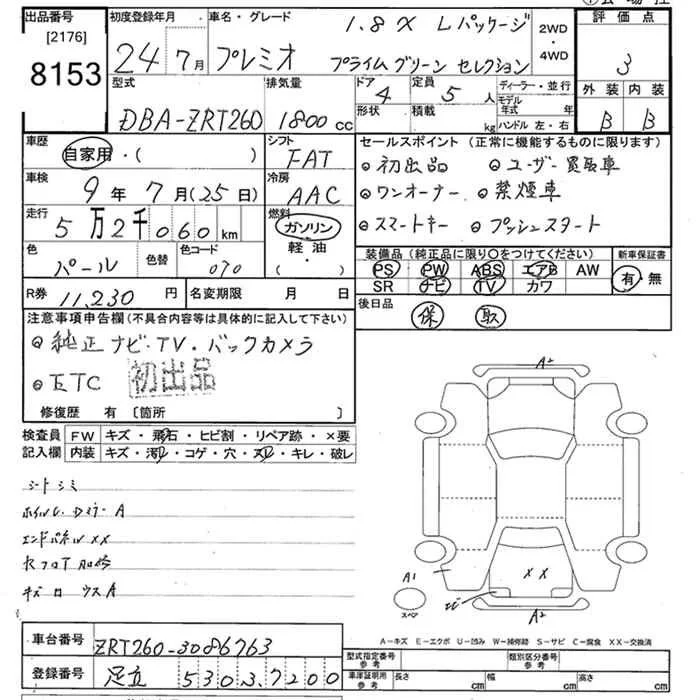 出品番号
[2176]
8153
初度登録年月
24年 7月
車名・グレード
1.8 X Lパッケージ
プレミオ プライムグリーン セレクション
2WD
・
4WD
評価点
3
型式
DBA-ZRT260
排気量
1800 cc
ドア
4
定員
5人
ディーラー・並行
形状
積載
kg
モデル年式 年
ハンドル 左・右
外装 内装
B B
車歴
自家用・( )
シフト
FAT
車検
9年 7月(25日)
冷房
AAC
走行
5万2千060km
燃料
ガソリン
軽・油
( )
色
パール
色替
色コード
070
R券
11,230 円
名変期限 月 日
セールスポイント (正常に機能するものに限ります)
◎初出品 ◎ユーザー買取車
◎ワンオーナー ◎禁煙車
◎スマートキー ◎プッシュスタート
装備品(純正品に限り○をつけてください)
PS PW ABS エアB AW
SR ナビ TV カワ
新車保証書
有・無
後日品
保 取
注意事項申告欄(不具合内容等は具体的に記入して下さい)
◎純正ナビ・TV・バックカメラ
◎ETC 初出品
修復歴 有 〔箇所 〕
検査員
記入欄
FW キズ・飛石・ヒビ割・リペア跡・×要
内装 キズ・汚レ・コゲ・穴・スレ・キレ・破レ
シートシミ
エンドパネルXX
A2
A1
XX
A2
スペア
A-キズ E-エクボ U-凹み W-補修跡 S-サビ C-腐食 XX-交換済
車台番号
ZRT260-3086763
登録番号
足立 530 ス 7200
型式指定番号
参考
類別区分番号
参考
車庫証明用
参考
長さ cm
幅 cm
高さ cm